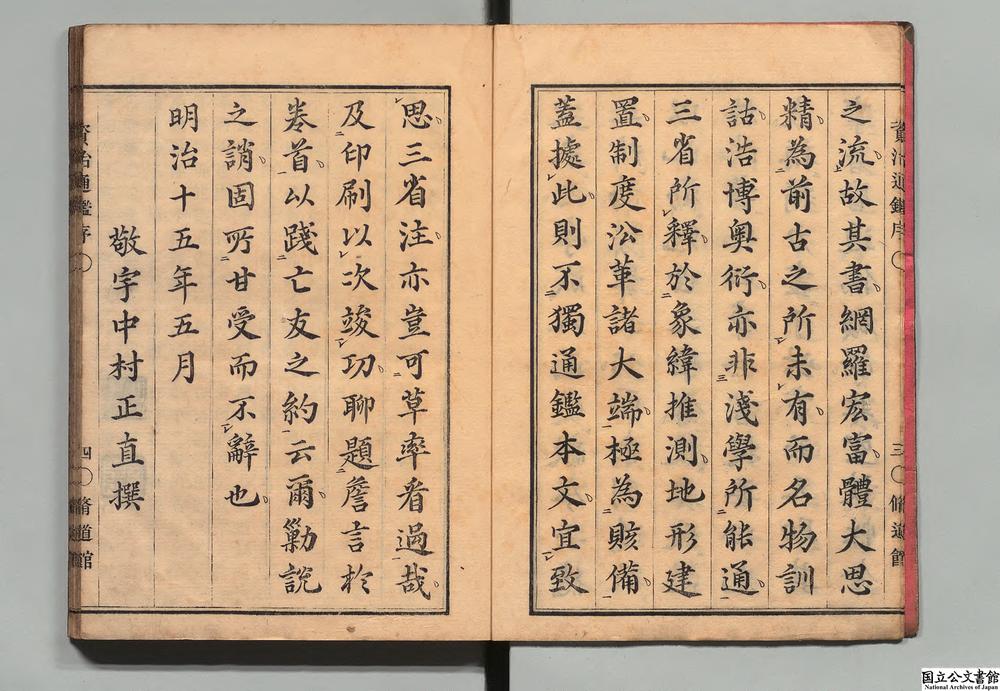 之流故其書網羅宏富體大思
精為前古之所未有而名物訓
詁浩博奥衍亦非淺學所能通
三省所釋於象緯推測地形建
置制度沿革諸大端極為賅備
蓋據此則不獨通鑑本文宜致
思三省注亦豈可草率看過哉
及印刷以次竣功聊題詹言於
卷首以踐亡友之約云爾勦說
之誚固所甘受而不辭也
明治十五年五月
敬宇中村正直撰
資治通鑑序
三
脩道館
資治通鑑序
四
脩道館
国立公文書館
National Archives of Japan